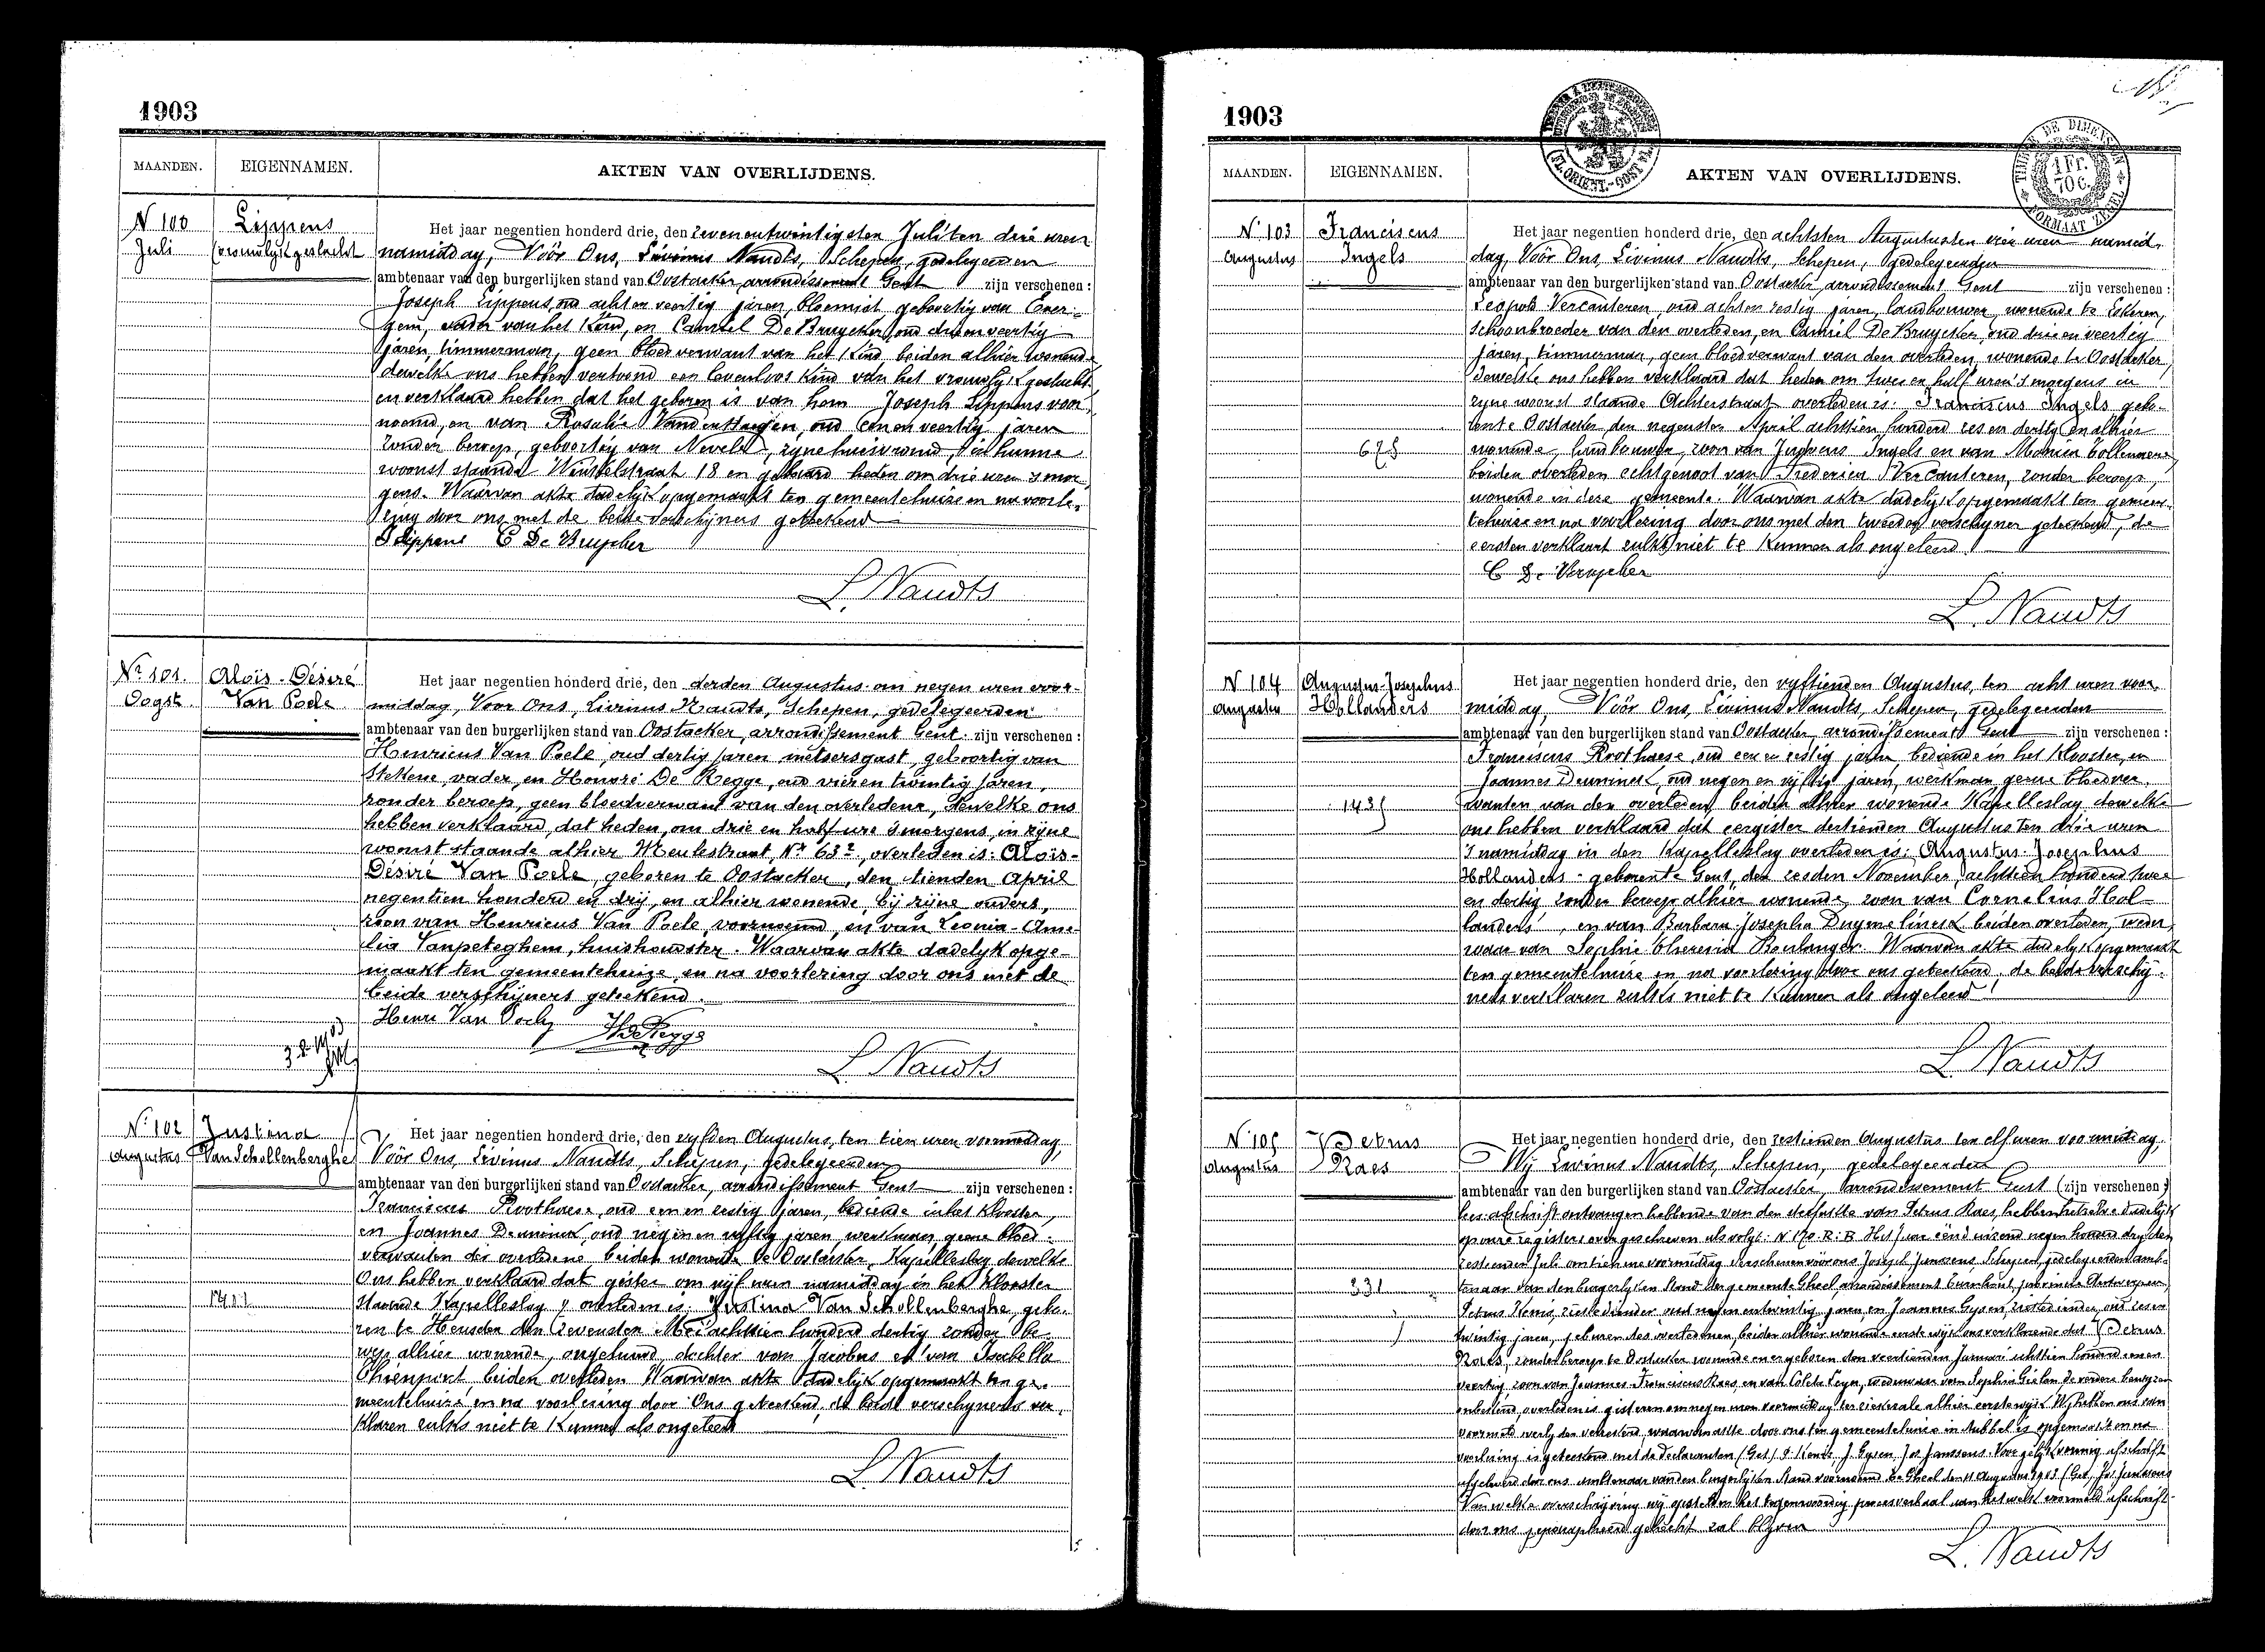 1903
MAANDEN. EIGENNAMEN. AKTEN VAN OVERLIJDENS.
N 100 Lippens
Juli (vrouwlijk geslacht
Het jaar negentien honderd drie, den zevenentwintigsten Juli ten drie uren
namiddag, Vóór Ons, Livinus Naudts, Schepen, gedelegeerden
ambtenaar van den burgerlijken stand van Oostacker, arrondissement Gent zijn verschenen :
Joseph Lippens, oud acht en veertig jaren, bloemist, geboortig van Ever-
gem, vader van het Kind, en Camiel De Bruycker, oud drie en veertig
jaren, timmerman, geen bloedverwant van het Kind, beiden alhier wonende
dewelke ons hebben vertoond een levenloos Kind van het vrouwlijk geslacht
en verklaard hebben dat het geboren is van hem Joseph Lippens voor-
noemd, en van Rosalie Vanderstraeten, oud een en veertig jaren
zonder beroep, geboortig van Nevele, zijne huisvrouw, in hunne
woonst staande Winkelstraat 18 en gebaard heden om drie uren 's mor-
gens. Waarvan akte dadelijk opgemaakt ten gemeentehuize en na voorle-
zing door ons met de beide verschijners geteekend
J Lippens C De Bruycker
L. Naudts
Nr 101. Aloïs-Désiré
Oogst. Van Poele
Het jaar negentien honderd drie, den derden Augustus om negen uren voor-
middag, Voor Ons, Livinus Naudts, Schepen, gedelegeerden
ambtenaar van den burgerlijken stand van Oostacker, arrondissement Gent. zijn verschenen :
Henricus Van Poele, oud dertig jaren, metsersgast, geboortig van
Stekene, vader, en Honoré De Regge, oud vier en twintig jaren,
zonder beroep, geen bloedverwant van den overledene, dewelke ons
hebben verklaard, dat heden, om drie en half ure 's morgens, in zijne
woonst staande alhier Meulestraat, Nr 63², overleden is: Aloïs-
Désiré Van Poele, geboren te Oostacker, den tienden April
negentien honderd en drij, en alhier wonende, bij zijne ouders,
zoon van Henricus Van Poele, voornoemd, en van Leonia-Ame-
lia Vanpeteghem, huishoudster. Waarvan akte dadelijk opge-
maakt ten gemeentehuize, en na voorlezing door ons met de
beide verschijners geteekend.
Henri Van Poele H De Regge
L. Naudts
N. 102 Justina
Augustus Van Schollenberghe
Het jaar negentien honderd drie, den vijfden Augustus, ten tien uren voormiddag,
Vóór Ons, Livinus Naudts, Schepen, gedelegeerden
ambtenaar van den burgerlijken stand van Oostacker, arrondissement Gent zijn verschenen :
Franciscus Roothaese, oud een en zestig jaren, bediende in het Klooster,
en Joannes Deuninck, oud negen en vijftig jaren, werkman, geene bloed-
verwanten der overledene beiden wonende te Oostacker, Kapelleslag dewelke
Ons hebben verklaard dat gister om vijf uren namiddag in het Klooster
staande Kapelleslag 7 overleden is: Justina Van Schollenberghe, gebo-
ren te Heusden den zevensten Mei achttien honderd dertig zonder be-
roep alhier wonende, ongehuwd, dochter van Jacobus en van Isabella
beiden overleden Waarvan akte dadelijk opgemaakt ten ge-
meentehuize, en na voorlezing door Ons geteekend, de beide verschijners ver-
klaren zulks niet te Kunnen als ongeleerd
L. Naudts
1903
MAANDEN. EIGENNAMEN. AKTEN VAN OVERLIJDENS.
1 Fr. 70 c.
N. 103 Franciscus
Augustus Ingels
678
Het jaar negentien honderd drie, den achtsten Augustus ten drie uren namid-
dag, Vóór Ons, Livinus Naudts, Schepen, gedelegeerden
ambtenaar van den burgerlijken stand van Oostacker arrondissement Gent zijn verschenen :
Leopold Vercauteren, oud acht en zestig jaren, landbouwer, wonende te
schoonbroeder van den overleden, en Camiel De Bruycker, oud drie en veertig
jaren, timmerman, geen bloedverwant van den overleden, wonende te Oostacker,
dewelke ons hebben verklaard dat heden om twee en half uren 's morgens in
zijne woonst staande Achterstraat overleden is: Franciscus Ingels gebo-
ren te Oostacker den negensten April achttien honderd zes en dertig en alhier
wonende, landbouwer, zoon van Judocus Ingels en van
beiden overleden echtgenoot van Frederica Vercauteren, zonder beroep,
wonende in deze gemeente. Waarvan akte dadelijk opgemaakt ten gemeen-
tehuize en na voorlezing door ons met den tweeden verschijner geteekend, de
eersten verklaart zulks niet te Kunnen als ongeleerd.
C De Bruycker
L. Naudts
N 104 Augustus-Josephus
Augustus Hollanders
143
Het jaar negentien honderd drie, den vijftienden Augustus, ten acht uren voor-
middag, Vóór Ons, Livinus Naudts, Schepen, gedelegeerden
ambtenaar van den burgerlijken stand van Oostacker arrondissement Gent zijn verschenen :
Franciscus Roothaese, oud een en zestig jaren, bediende in het Klooster, en
Joannes Deuninck, oud negen en vijftig jaren, werkman geene bloedver-
wanten van den overleden, beiden alhier wonende Kapelleslag dewelke
ons hebben verklaard dat eergister dertienden Augustus ten drie uren
's namiddag in den Kapelleslag overleden is: Augustus Josephus
Hollanders geboren te Gent, den zesden November achttien honderd twee
en dertig zonder beroep alhier wonende, zoon van Cornelius Hol-
landers, en van Barbara Josepha Duymelinck beiden overleden, wedu-
waar van Sophie Theresia Boulanger. Waarvan akte dadelijk opgemaakt
ten gemeentehuize en na voorlezing door ons geteekend, de beide verschij-
ners verklaren zulks niet te Kunnen als ongeleerd
L. Naudts
N. 105 Petrus
Augustus Raes
231
Het jaar negentien honderd drie, den zestienden Augustus ten elf uren voormiddag,
Wij Livinus Naudts, Schepen, gedelegeerden
ambtenaar van den burgerlijken stand van Oostacker, arrondissement Gent (zijn verschenen :)
een afschrift ontvangen hebbende van den sterfakte van Petrus Raes, hebben hetzelve dadelijk
op onze registers overgeschreven als volgt: N 170. R. B. Het jaar een duizend negen honderd drij den
zestienden Juli om tien ure voormiddag verschenen vóór ons Joseph Janssens, Schepen, gedelegeerden amb-
tenaar van den burgerlijken Stand der gemeente Gheel arrondissement Turnhout, provincie Antwerpen,
Petrus Kenis, ziekediender oud negen en twintig jaren en Joannes Gysen, ziekediender, oud zes en
twintig jaren, geburen des overledenen, beiden alhier wonende eerste wijk ons verklarende dat Petrus
Raes, zonder beroep te Oostacker wonende en er geboren den veertienden Januari achttien honderd een en
veertig zoon van Joannes Franciscus Raes en van Coleta Leyn, weduwaar van Sophia de verdere
onbekend, overleden is gisteren om negen uren voormiddag ter ziekezale alhier eerste wijk. Wij hebben ons van
voormeld overlijden verzekerd, waarvan akte door ons ten gemeentehuize in dubbel is opgemaakt en na
voorlezing is geteekend met de Declaranten (Get) P. Kenis. J. Gysen. Jos Janssens. Voor gelijkvormig afschrift
afgeleverd door ons ambtenaar van den burgerlijken Stand voornoemd te Gheel den 11 Augustus 1903 (Get) Jos Janssens
Van welke overschrijving wij opstellen het tegenwoordig procesverbaal aan hetwelk voormeld afschrift
door ons geparapheerd gehecht zal blijven
L. Naudts